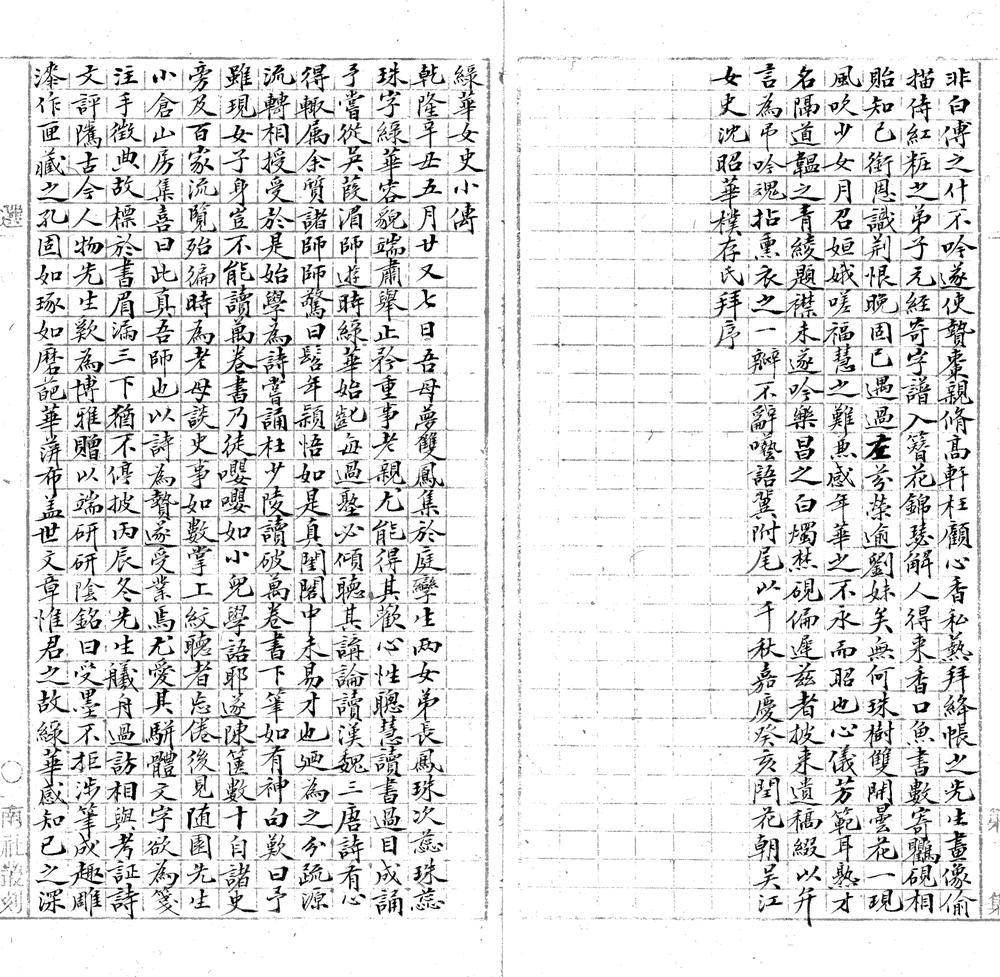 非白傅之什不吟遂使贄棗親脩高軒枉顧心香私爇拜絳帳之先生畫像偷
描侍紅粧之弟子元經奇字譜入簪花錦瑟解人得來香口魚書數寄鸜硯相
貽知己銜恩識荆恨晚固已遇過左芬榮逾劉妹矣無何珠樹雙開曇花一現
風吹少女月召姮娥嗟福慧之難兼感年華之不永而昭也心儀芳範耳熟才
名隔道韞之青綾題襟未遂吟樂昌之白燭焚硯偏遲茲者披來遺稿綴以弁
言為弔吟魂拈熏衣之一瓣不辭囈語冀附尾以千秋嘉慶癸亥閏花朝吳江
女史沈昭華樸存氏拜序
第 集
綠華女史小傳
乾隆辛丑五月廿又七日吾母夢雙鳳集於庭孿生兩女弟長鳳珠次蕊珠蕊
珠字綠華容貌端肅舉止矜重事老親尤能得其歡心性聰慧讀書過目成誦
予嘗從吳葭湄師遊時綠華始齔每過塾必傾聽其講論讀漢魏三唐詩有心
得輒屬余質諸師師驚曰髫年穎悟如是真閨閣中未易才也廼為之分疏源
流轉相授受於是始學為詩嘗誦杜少陵讀破萬卷書下筆如有神句歎曰予
雖現女子身豈不能讀萬卷書乃徒嚶嚶如小兒學語耶遂陳篋數十自諸史
旁及百家流覽殆徧時為老母談史事如數掌上紋聽者忘倦後見随園先生
小倉山房集喜曰此真吾師也以詩為贄遂受業焉尤愛其駢體文字欲為箋
注手徵典故標於書眉漏三下猶不停披丙辰冬先生艤舟過訪相與考証詩
文評隲古今人物先生歎為博雅贈以端研研陰銘曰受墨不拒涉筆成趣雕
漆作匣藏之孔固如琢如磨葩華荓布蓋世文章惟君之故綠華感知己之深
選
南社叢刻